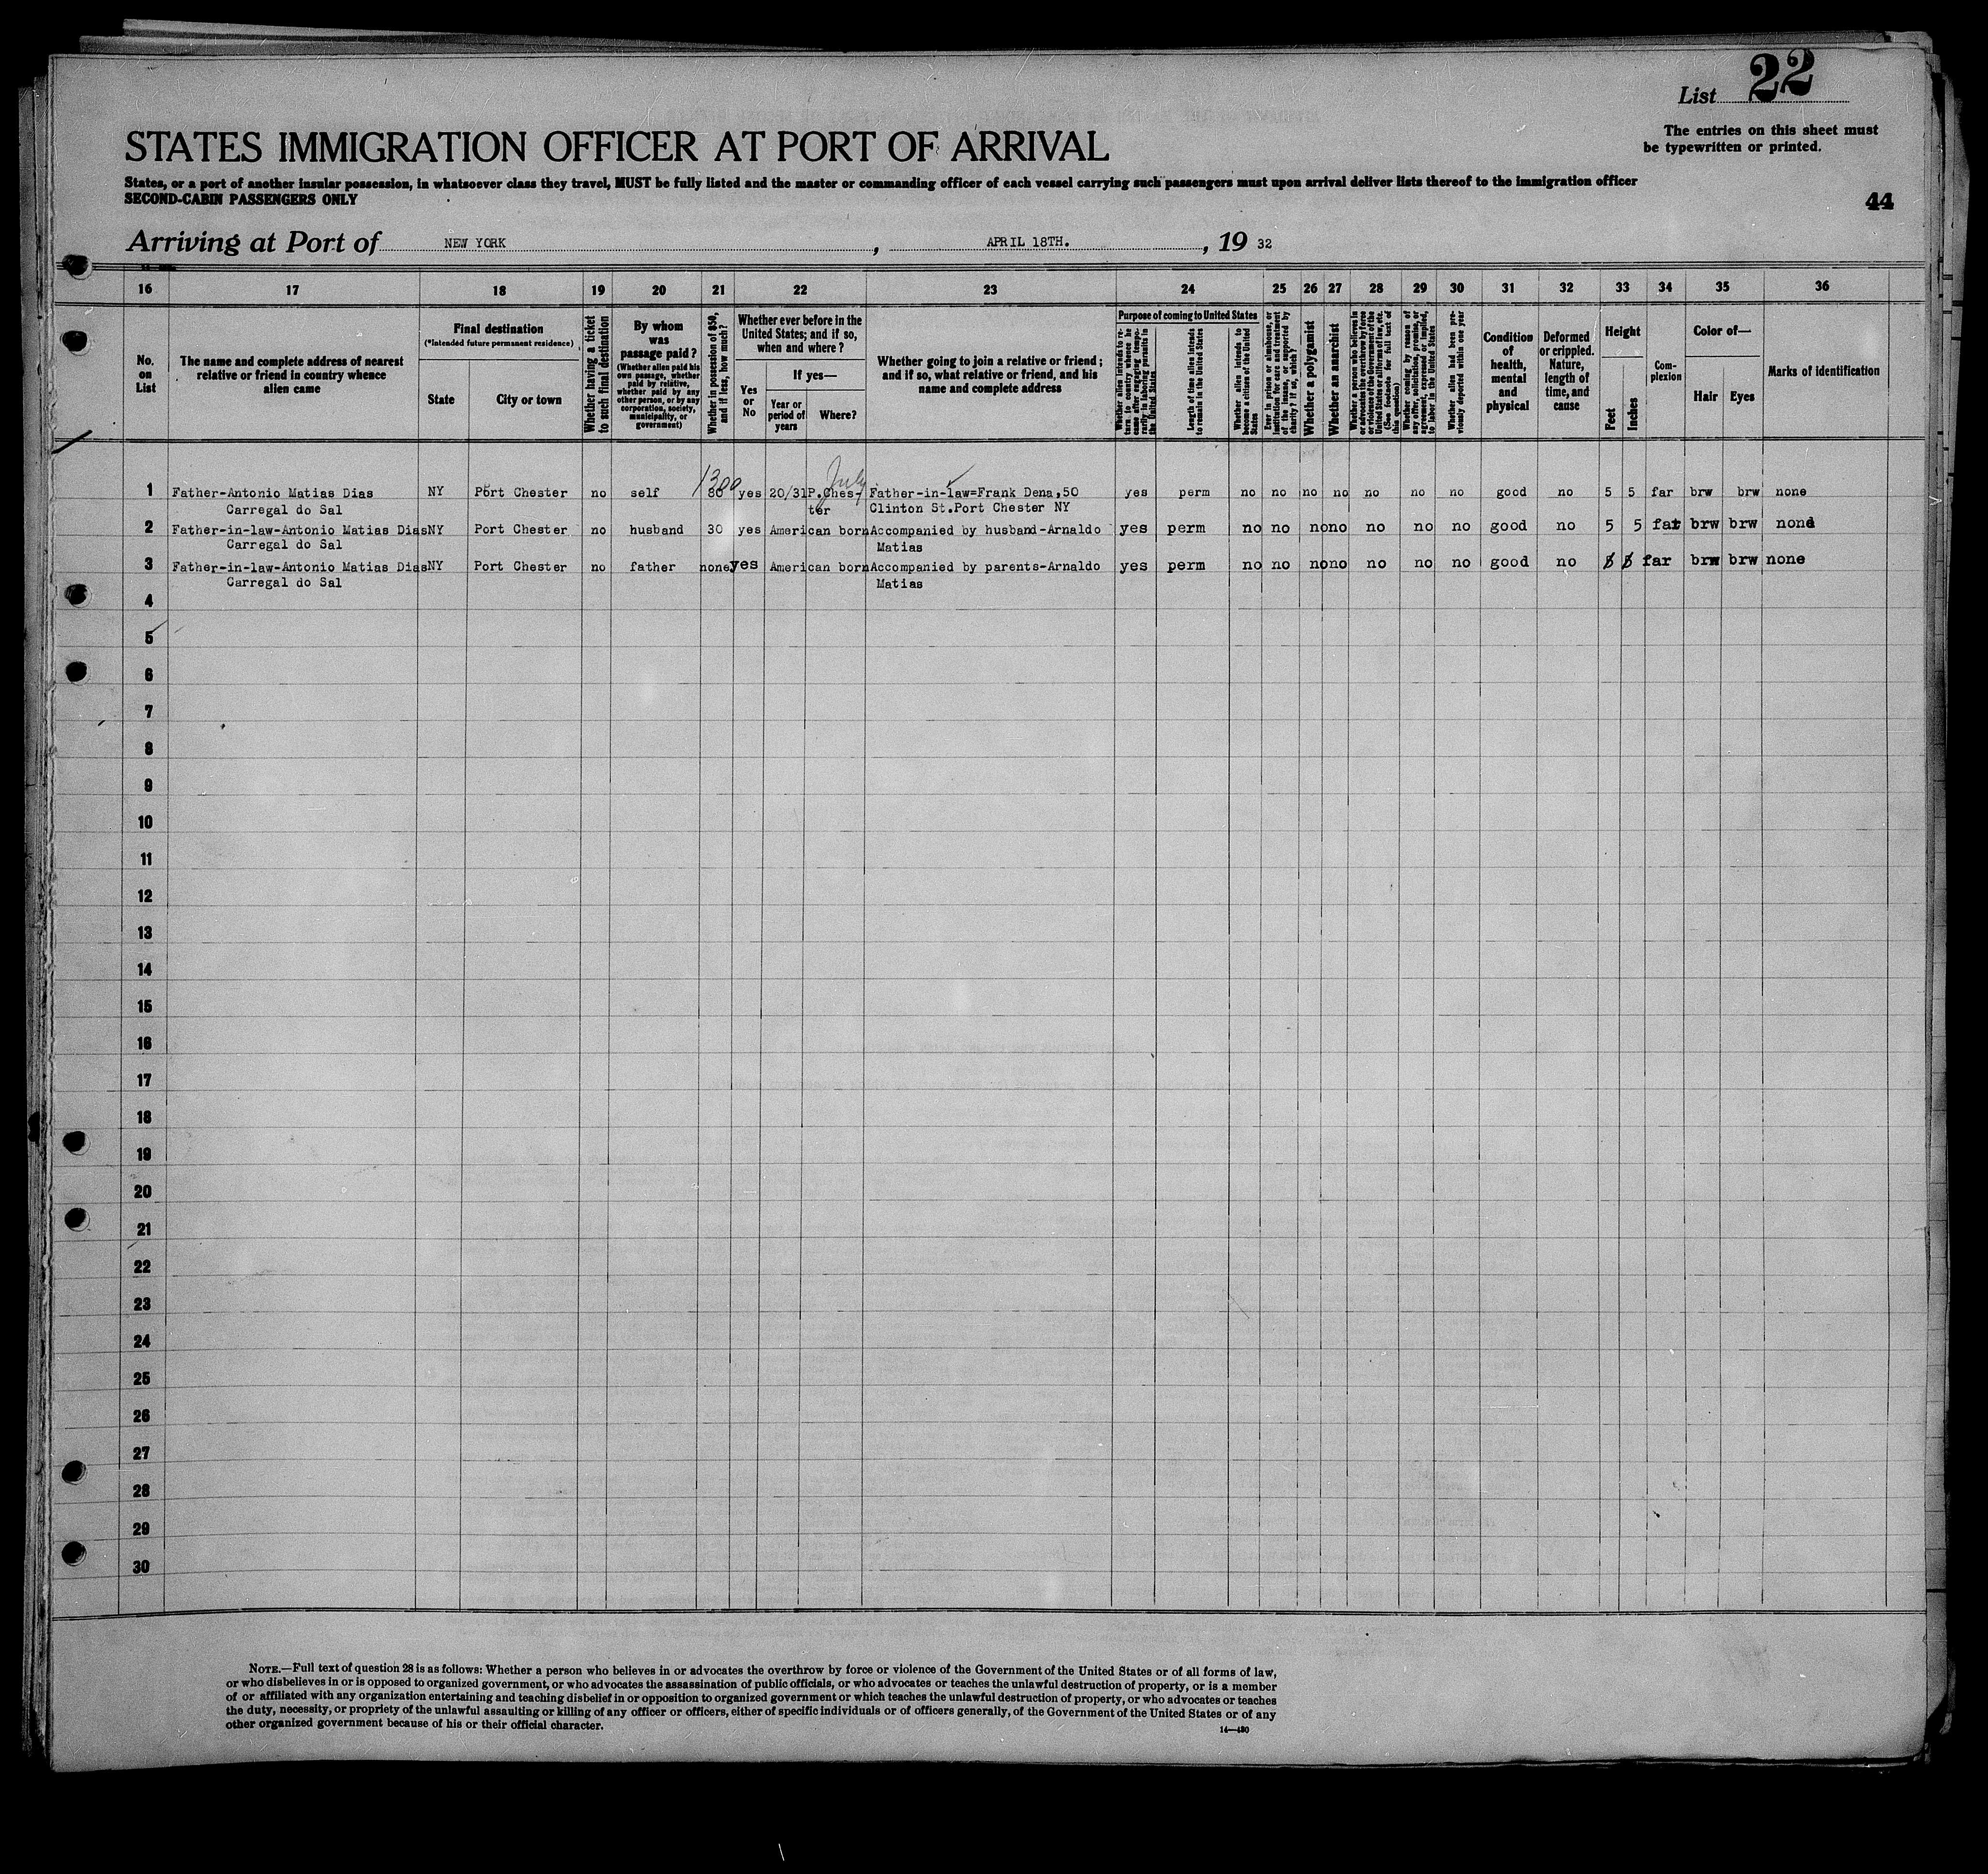 List 22
The entries on this sheet must
be typewritten or printed.
STATES IMMIGRATION OFFICER AT PORT OF ARRIVAL
States, or a port of another insular possession, in whatsoever class they travel, MUST be fully listed and the master or commanding officer of each vessel carrying such passengers must upon arrival deliver lists thereof to the immigration officer
SECOND-CABIN PASSENGERS ONLY
44
Arriving at Port of NEW YORK, APRIL 18TH., 19 32
16 17 18 19 20 21 22 23 24 25 26 27 28 29 30 31 32 33 34 35 36
No. on List
The name and complete address of nearest relative or friend in country whence alien came
Final destination
(*Intended future permanent residence)
State
City or town
Whether having a ticket to such final destination
By whom was passage paid?
(Whether alien paid his own passage, whether paid by relative, whether paid by any other person, or by any corporation, society, municipality, or government)
Whether in possession of $50, and if less, how much?
Whether ever before in the United States; and if so, when and where?
Yes or No
If yes—
Year or period of years
Where?
Whether going to join a relative or friend; and if so, what relative or friend, and his name and complete address
Purpose of coming to United States
Whether alien intends to return to country whence he came after engaging temporarily in laboring pursuits in the United States
Length of time alien intends to remain in the United States
Whether alien intends to become a citizen of the United States
Ever in prison or almshouse, or institution for care and treatment of the insane, or supported by charity? If so, which?
Whether a polygamist
Whether an anarchist
Whether a person who believes in or advocates the overthrow by force or violence of the Government of the United States or all forms of law, etc. (See footnote for full text of this question)
Whether coming by reason of any offer, solicitation, promise, or agreement, expressed or implied, to labor in the United States
Whether alien had been previously deported within one year
Condition of health, mental and physical
Deformed or crippled. Nature, length of time, and cause
Height
Feet
Inches
Complexion
Color of—
Hair
Eyes
Marks of identification
1300 July
1 Father-Antonio Matias Dias NY Port Chester no self 80 yes 20/31 P.Ches- Father-in-law=Frank Dena,50 yes perm no no no no no no no good no 5 5 far brw brw none
Carregal do Sal ter Clinton St.Port Chester NY
2 Father-in-law-Antonio Matias Dias NY Port Chester no husband 30 yes American born Accompanied by husband-Arnaldo yes perm no no no no no no no good no 5 5 far brw brw none
Carregal do Sal Matias
3 Father-in-law-Antonio Matias Dias NY Port Chester no father none yes American born Accompanied by parents-Arnaldo yes perm no no no no no no no good no far brw brw none
Carregal do Sal Matias
4
5
6
7
8
9
10
11
12
13
14
15
16
17
18
19
20
21
22
23
24
25
26
27
28
29
30
NOTE.—Full text of question 28 is as follows: Whether a person who believes in or advocates the overthrow by force or violence of the Government of the United States or of all forms of law,
or who disbelieves in or is opposed to organized government, or who advocates the assassination of public officials, or who advocates or teaches the unlawful destruction of property, or is a member
of or affiliated with any organization entertaining and teaching disbelief in or opposition to organized government or which teaches the unlawful destruction of property, or who advocates or teaches
the duty, necessity, or propriety of the unlawful assaulting or killing of any officer or officers, either of specific individuals or of officers generally, of the Government of the United States or of any
other organized government because of his or their official character.
14—430